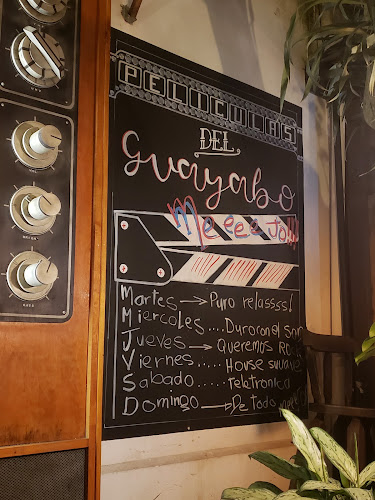 PELICULAS
DEL
Guayabo
Martes → Puro relassss!
Miercoles....Duroron el
Jueves → Queremos
Viernes.... House
Sabado ..... Teletronica
Domingo → De todo